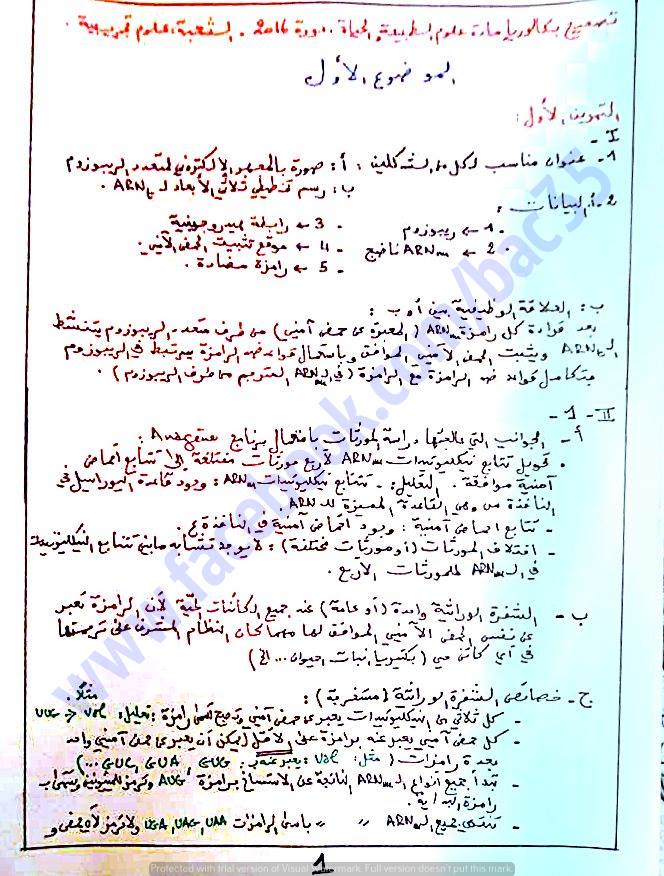 تصحيح بكالوريا مادة علوم الطبيعة و الحياة . دورة 2016 . الشعبة: علوم تجريبية .
الموضوع الأول
التمرين الأول:
I -
1- عنوان مناسب لكل من الشكلين : أ : صورة بالمجهر الإلكتروني لمتعدد الريبوزوم
ب : رسم تخطيطي ثلاثي الأبعاد لـ ARNt .
2- أ. البيانات :
1 ← ريبوزوم
2 ← ARNm ناضج
3 ← رابطة هيدروجينية
4 ← موقع تثبيت الحمض الأميني .
5 ← رامزة مضادة .
ب : العلاقة الوظيفية بين أ و ب :
بعد قراءة كل رامزة ARNm (المعبرة عن حمض أميني) من طرف متعدد الريبوزوم ينشط
الـ ARNt ويثبت الحمض الأميني الموافق وباستعمال قواعد ضد الرامزة يرتبط في الريبوزوم
بتكامل قواعد ضد الرامزة مع الرامزة (في الـ ARNm المترجم من طرف الريبوزوم) .
II - 1 -
أ - الجوانب التي عالجتها دراسة المورثات باستعمال برنامج Anagène :
• تحويل تتابع نيكليوتيدات ARNm لأربع مورثات مختلفة إلى تتابع أحماض
أمينية موافقة . التعليل : - تتابع نيكليوتيدات ARNm : وجود قاعدة اليوراسيل في
النافذة من وهي القاعدة المميزة للـ ARN .
- تتابع أحماض أمينية : وجود أحماض أمينية في النافذة ع .
- اختلاف المورثات (أو مورثات مختلفة) : لا يوجد تشابه ما بين تتابع النيكليوتيدات
في الـ ARNm للمورثات الأربع .
ب - الشفرة الوراثية واحدة (أو عامة) عند جميع الكائنات الحية لأن الرامزة تعبر
عن نفس الحمض الأميني الموافق لها مهما كان النظام المشرف على ترجمتها
في أي كائن حي (بكتيريا، نبات، حيوان ... الخ)
ج - خصائص الشفرة الوراثية (مستقرئة) :
- كل ثلاثي من النيكليوتيدات يعبر عن حمض أميني وتدعى رامزة : تعليل: مثلا: UUG
- كل حمض أميني يعبر عنه برامزة على الأقل (يمكن أن يعبر عن حمض أميني واحد
بعدة رامزات (مثل: Val يعبر عنه: GUG GUA GUC ...)
- تبدأ جميع أنواع الـ ARNm الناتجة عن الاستنساخ برامزة AUG وترمز للميثيونين وتسمى بـ
رامزة البداية .
- تنتهي جميع الـ ARNm " " بإحدى الرامزات UGA, UAG, UAA ولا ترمز لأي حمض و
1
www.facebook.com/bac35
Protected with trial version of Visual Watermark. Full version doesn't put this mark.